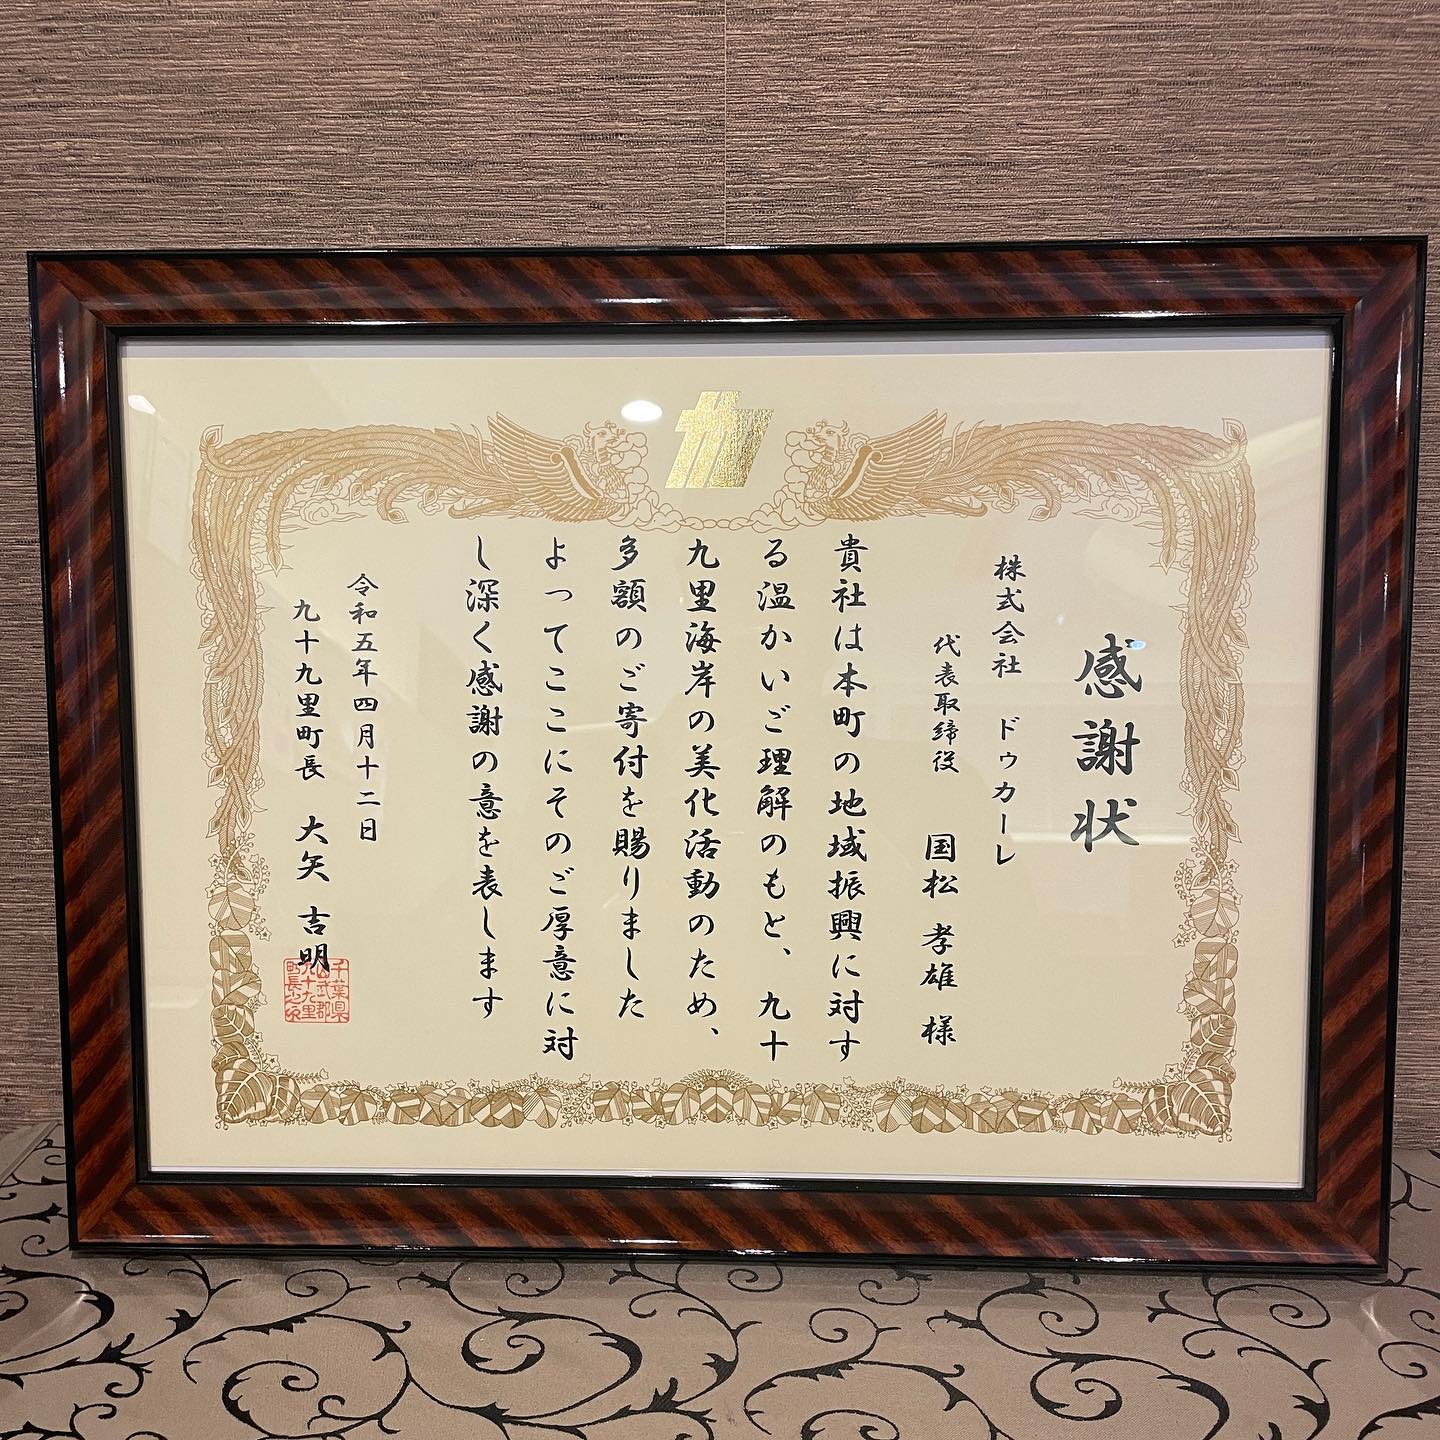 感謝状
株式会社 ドゥカーレ
代表取締役 国松 孝雄 様
貴社は本町の地域振興に対す
る温かいご理解のもと、九十
九里海岸の美化活動のため、
多額のご寄付を賜りました
よってここにそのご厚意に対
し深く感謝の意を表します
令和五年四月十二日
九十九里町長 大矢 吉明
千葉県
山武郡
九十九里
町長之印